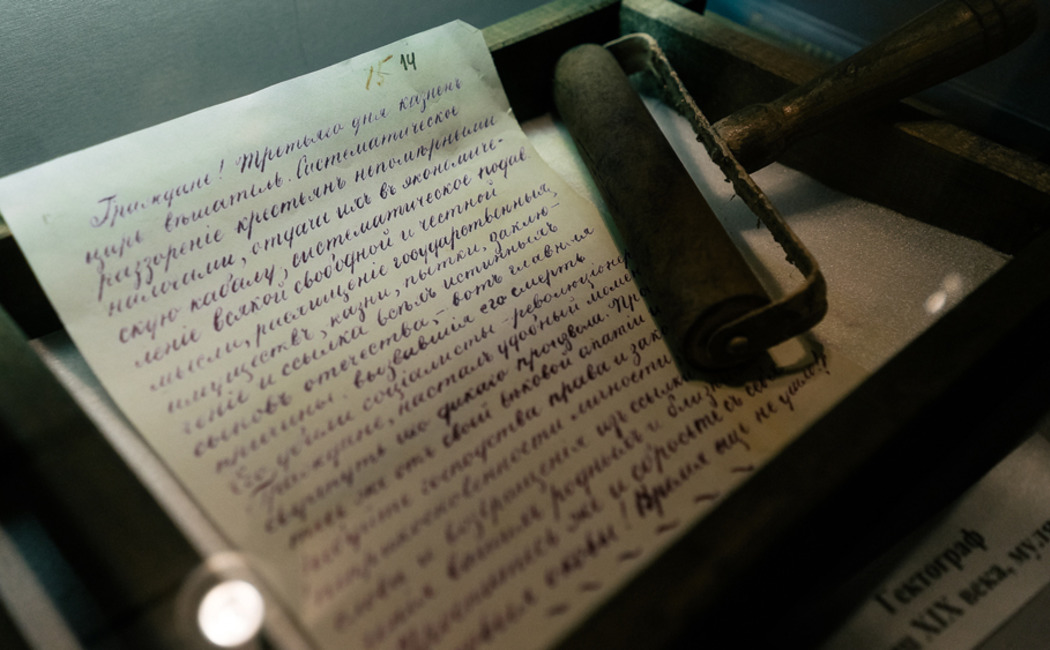 15 14
Граждане! Третьяго дня казненъ
царь вѣшатель. Систематическое
раззореніе крестьянъ непомѣрными
налогами, отдачи ихъ въ экономиче-
скую кабалу, систематическое подав-
леніе всякой свободной и честной
мысли, расхищеніе государственныхъ
имуществъ, казни, пытки, заклю-
ченіе и ссылка всѣхъ истинныхъ
сыновъ отечества, – вотъ главныя
причины, вызвавшія его смерть.
Его убили соціалисты-революціоне
Граждане, насталъ удобный момен
свергнуть иго дикаго произвола. Про
тесь же отъ своей вѣковой апатіи
господства права и зак
неприкосновенности личности
слова и возвращенія изъ ссылк
вашимъ роднымъ и близ
же и сбросьте съ себ
оковы! Время еще не ушло!
Гектограф
XIX века, муля